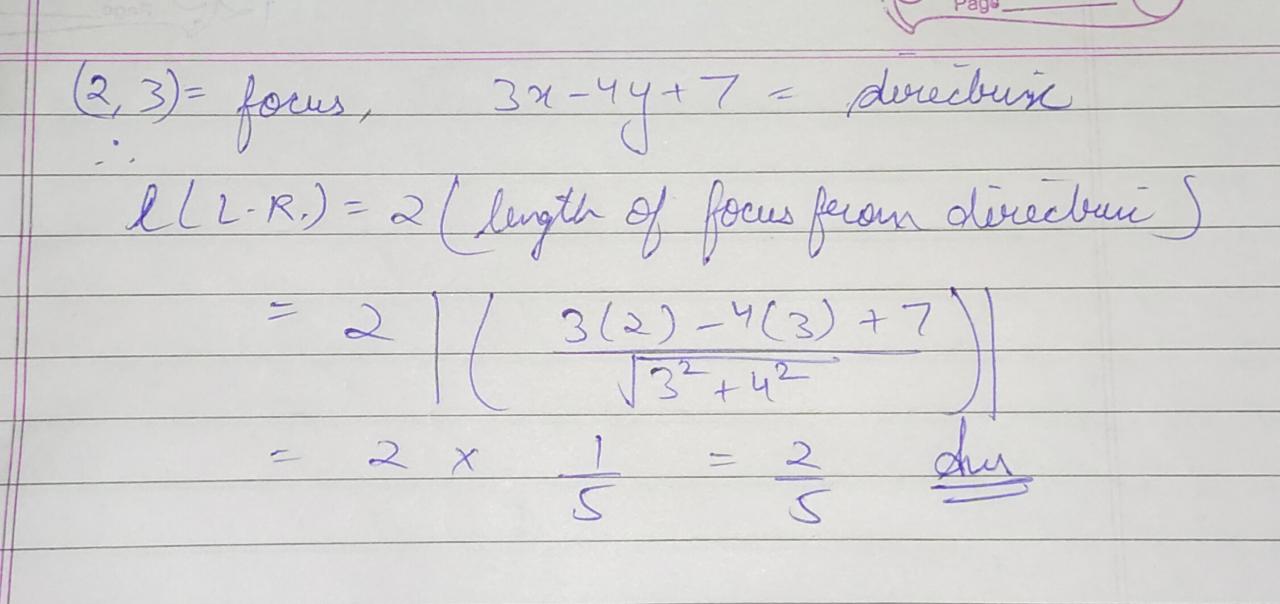 Page
(2, 3) = focus, 3x - 4y + 7 = directrix
∴
l(L.R.) = 2 (length of focus from directrix)
= 2 |( 3(2) - 4(3) + 7 / √3² + 4² )|
= 2 × 1/5 = 2/5 Ans